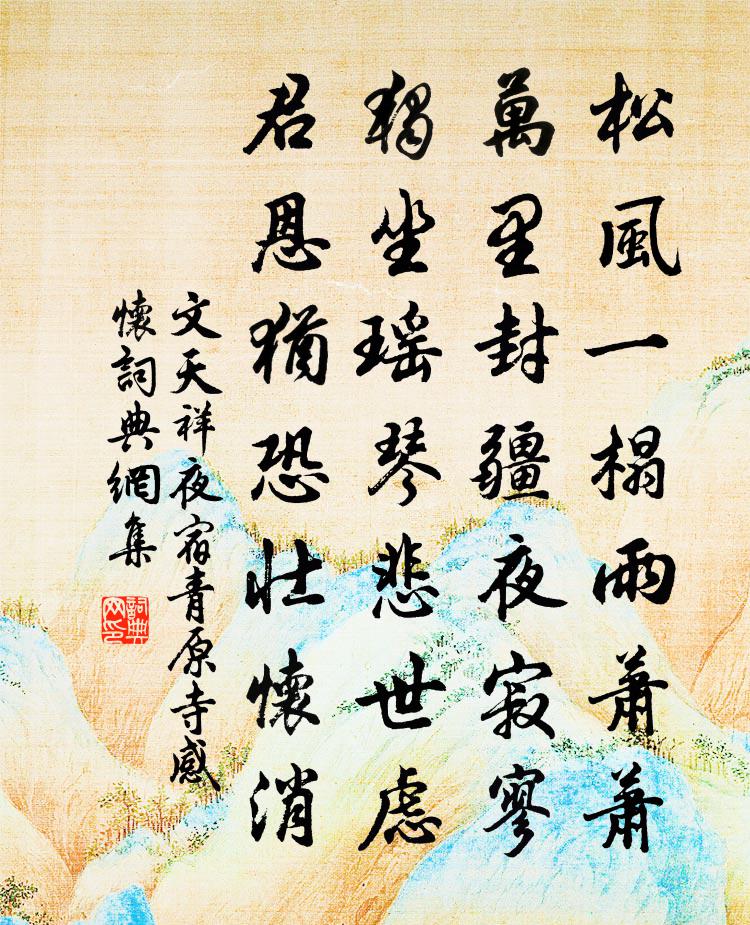 松風一榻雨蕭蕭
萬里封疆夜寂寥
獨坐瑤琴悲世慮
君恩猶恐壯懷消
文天祥夜宿青原寺感
懷詞典網集
詞典
网